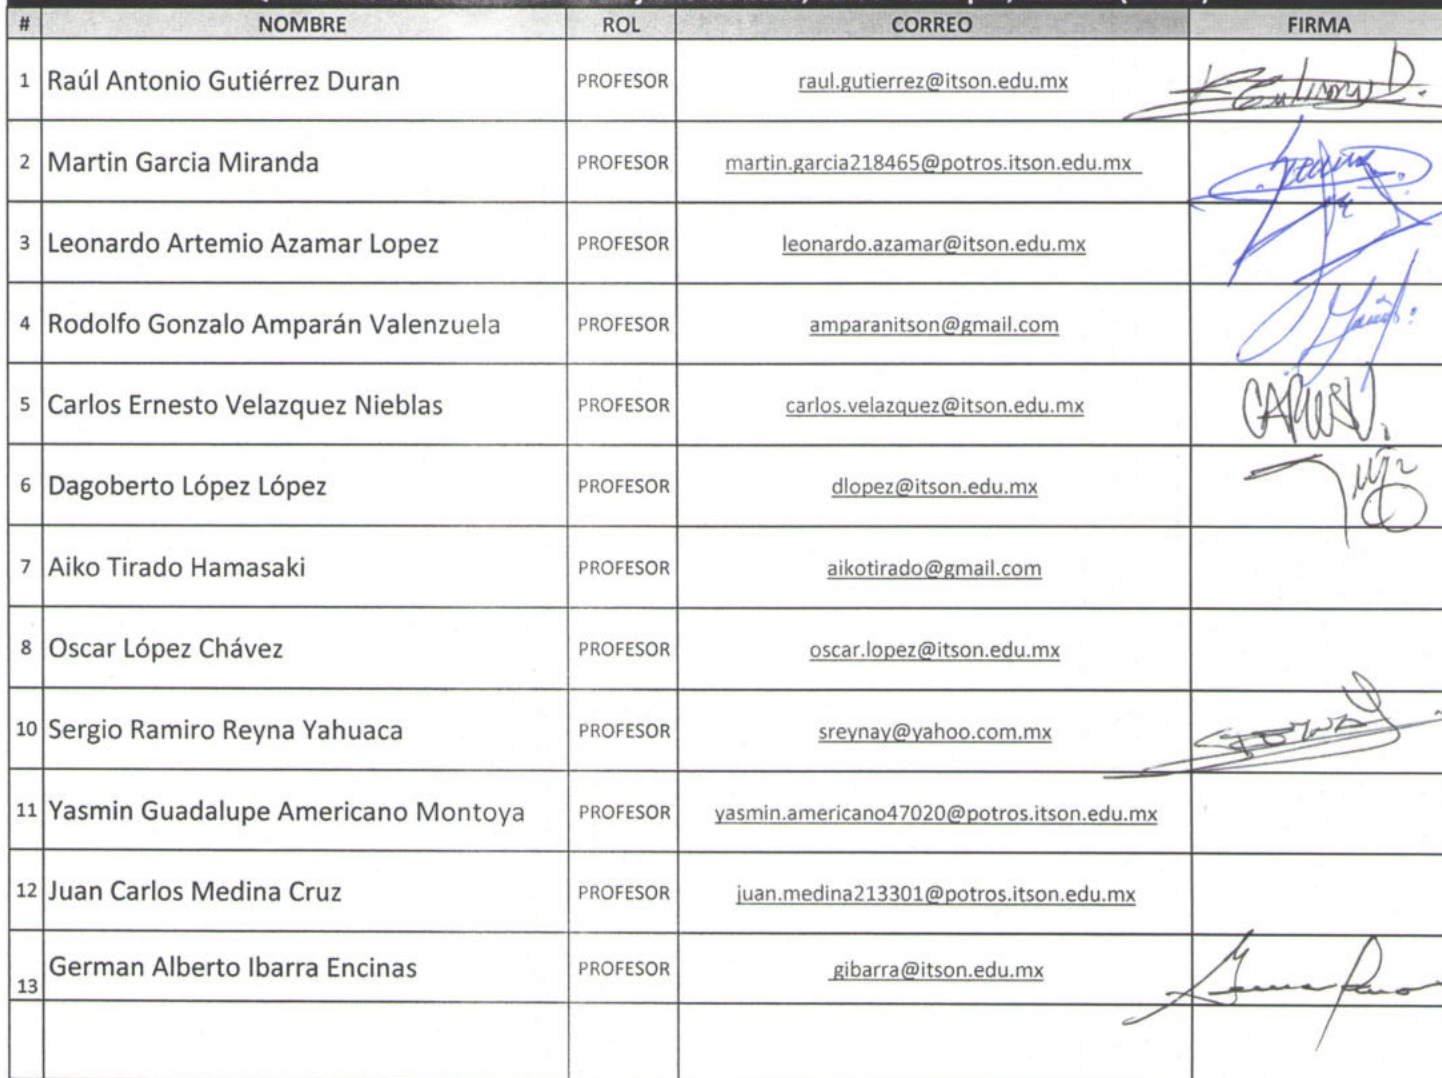 # NOMBRE ROL CORREO FIRMA
1 Raúl Antonio Gutiérrez Duran PROFESOR raul.gutierrez@itson.edu.mx
2 Martin Garcia Miranda PROFESOR martin.garcia218465@potros.itson.edu.mx
3 Leonardo Artemio Azamar Lopez PROFESOR leonardo.azamar@itson.edu.mx
4 Rodolfo Gonzalo Amparán Valenzuela PROFESOR amparanitson@gmail.com
5 Carlos Ernesto Velazquez Nieblas PROFESOR carlos.velazquez@itson.edu.mx
6 Dagoberto López López PROFESOR dlopez@itson.edu.mx
7 Aiko Tirado Hamasaki PROFESOR aikotirado@gmail.com
8 Oscar López Chávez PROFESOR oscar.lopez@itson.edu.mx
10 Sergio Ramiro Reyna Yahuaca PROFESOR sreynay@yahoo.com.mx
11 Yasmin Guadalupe Americano Montoya PROFESOR yasmin.americano47020@potros.itson.edu.mx
12 Juan Carlos Medina Cruz PROFESOR juan.medina213301@potros.itson.edu.mx
13 German Alberto Ibarra Encinas PROFESOR gibarra@itson.edu.mx